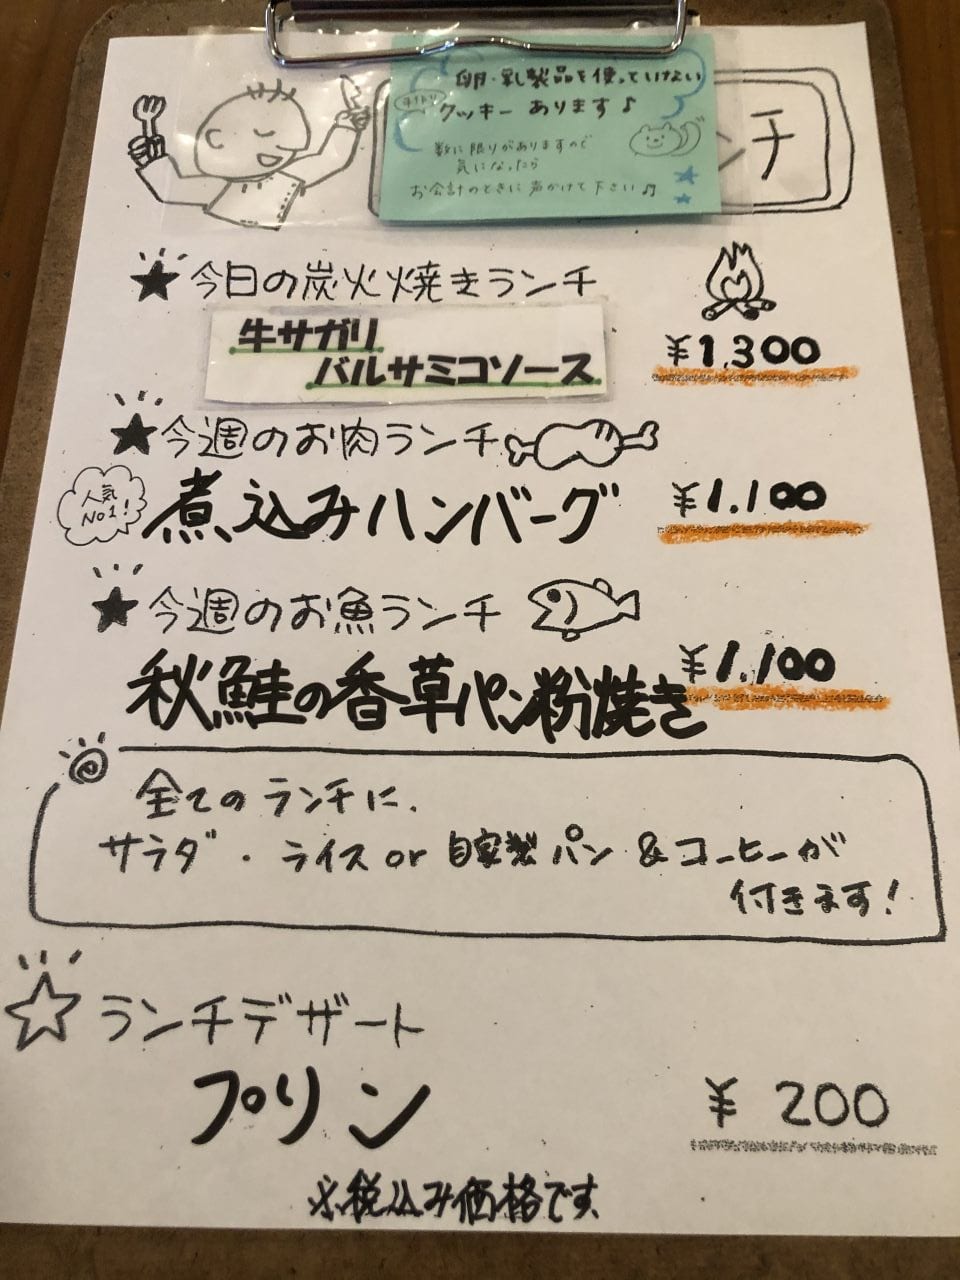 卵・乳製品を使っていない
手作り
クッキー あります♪
数に限りがありますので
気になったら
お会計のときに声かけて下さい♫
ンチ
★今日の炭火焼きランチ
牛サガリ
バルサミコソース
¥1,300
★今週のお肉ランチ
人気
No1!
煮込みハンバーグ
¥1,100
★今週のお魚ランチ
秋鮭の香草パン粉焼き
¥1,100
全てのランチに、
サラダ・ライス or 自家製パン & コーヒーが
付きます!
☆ランチデザート
プリン
¥200
※税込み価格です